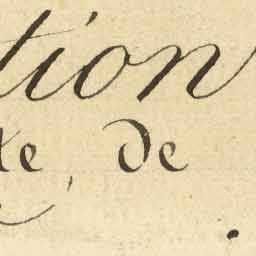 tion
xe, de